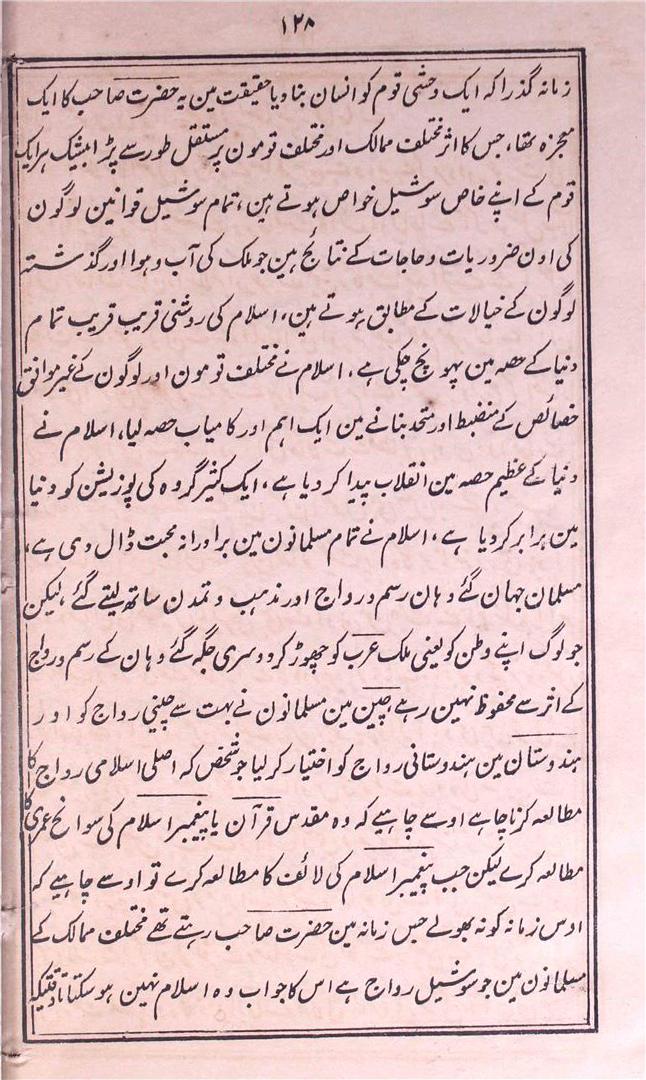 ۱۲۸
زمانہ گذرا کہ ایک وحشی قوم کو انسان بنا دیا حقیقت مین یہ حضرت صاحب کا ایک
معجزہ تھا، جس کا اثر مختلف ممالک اور مختلف قومون پر مستقل طور سے پڑا بیشک ہر ایک
قوم کے اپنے خاص سوشیل خواص ہوتے ہین، تمام سوشیل قوانین لوگون
کی اون ضروریات و حاجات کے نتائج ہین جو ملک کی آب و ہوا اور گذشتہ
لوگون کے خیالات کے مطابق ہوتے ہین، اسلام کی روشنی قریب قریب تمام
دنیا کے حصہ مین پہونچ چکی ہے، اسلام نے مختلف قومون اور لوگون کے غیر موافق
خصائص کے منضبط اور متحد بنانے مین ایک اہم اور کامیاب حصہ لیا، اسلام نے
دنیا کے عظیم حصہ مین انقلاب پیدا کر دیا ہے، ایک کثیر گروہ کی پوزیشن کو دنیا
مین برابر کر دیا ہے، اسلام نے تمام مسلمانون مین برادرانہ محبت ڈال دی ہے،
مسلمان جہان گئے وہان رسم و رواج اور مذہب و تمدن ساتھ لیتے گئے، لیکن
جو لوگ اپنے وطن کو یعنی ملک عرب کو چھوڑ کر دوسری جگہ گئے وہان کے رسم و رواج
کے اثر سے محفوظ نہین رہے چین مین مسلمانون نے بہت سے چینی رواج کو اور
ہندوستان مین ہندوستانی رواج کو اختیار کر لیا جو شخص کہ اصلی اسلامی رواج کا
مطالعہ کرنا چاہے اوسے چاہیے کہ وہ مقدس قرآن یا پیغمبر اسلام کی سوانح عمری کا
مطالعہ کرے لیکن جب پیغمبر اسلام کی لائف کا مطالعہ کرے تو اوسے چاہیے کہ
اوس زمانہ کو نہ بھولے جس زمانہ مین حضرت صاحب رہتے تھے مختلف ممالک کے
مسلمانون مین جو سوشیل رواج ہے اس کا جواب دہ اسلام نہین ہو سکتا تا وقتیکہ